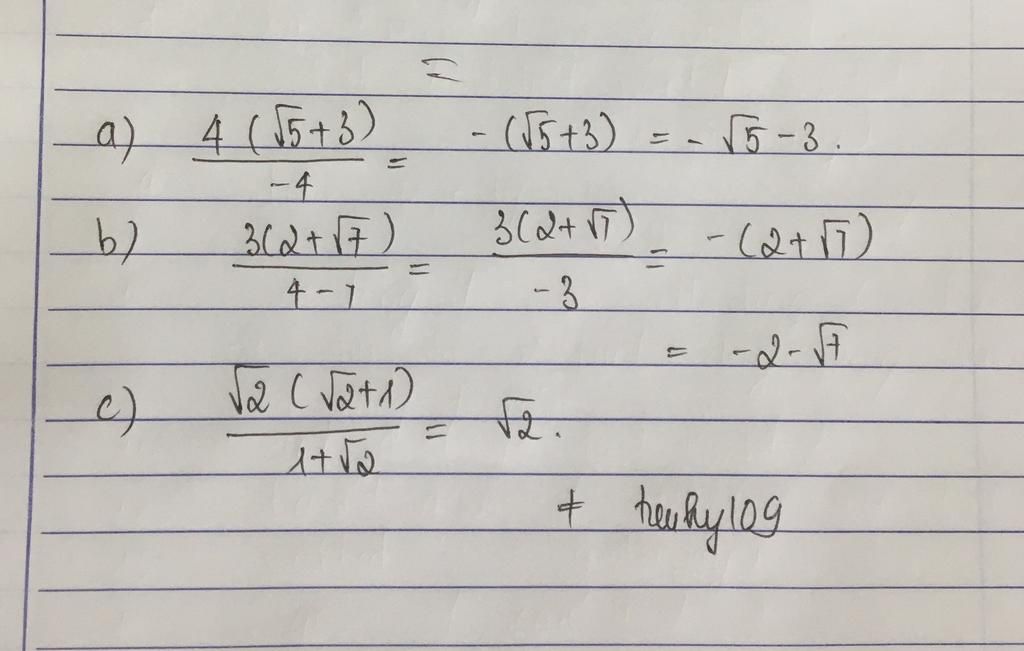 =
a) 4(√5+3)/-4 = -(√5+3) = -√5-3.
b) 3(2+√7)/4-7 = 3(2+√7)/-3 = -(2+√7)
= -2-√7
c) √2(√2+1)/1+√2 = √2.